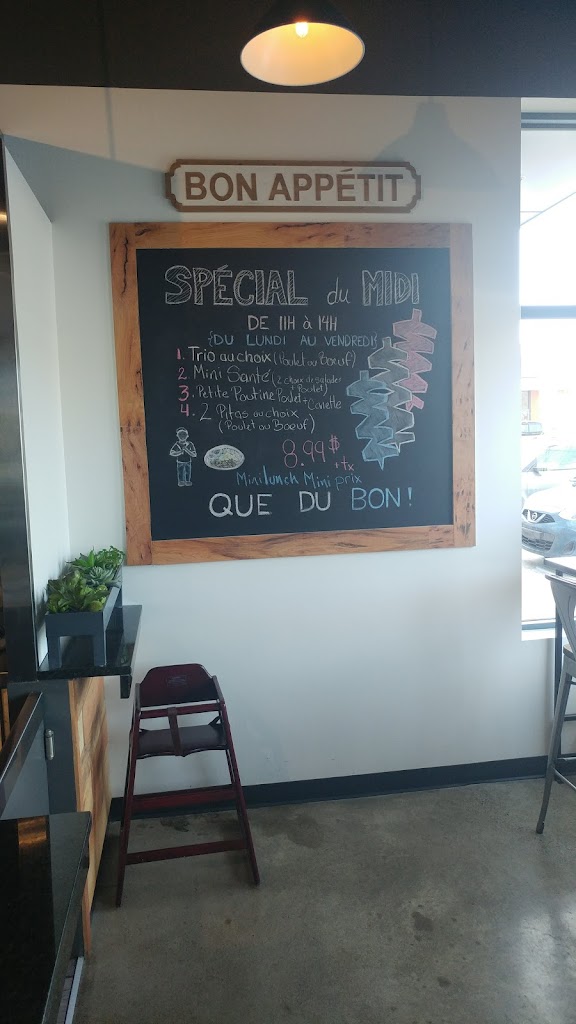 BON APPÉTIT
SPÉCIAL du MIDI
DE 11H à 14H
{DU LUNDI AU VENDREDI}
1. Trio au choix (Poulet ou Boeuf)
2 Mini Santé (2 choix de salades
+ Poulet)
3. Petite Poutine Poulet + Canette
4. 2 Pitas au choix
(Poulet ou Boeuf)
8.99$
+tx
Mini lunch Mini prix
QUE DU BON!